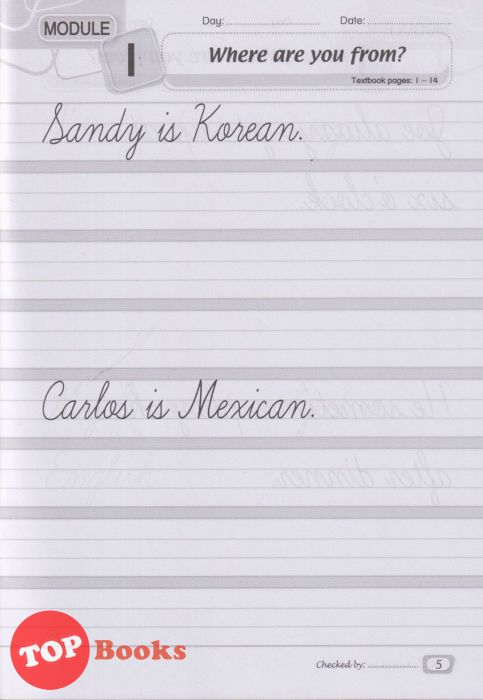 MODULE
1
Day: Date:
Where are you from?
Textbook pages: 1 – 14
Sandy is Korean.
Carlos is Mexican.
TOP Books
Checked by: 5